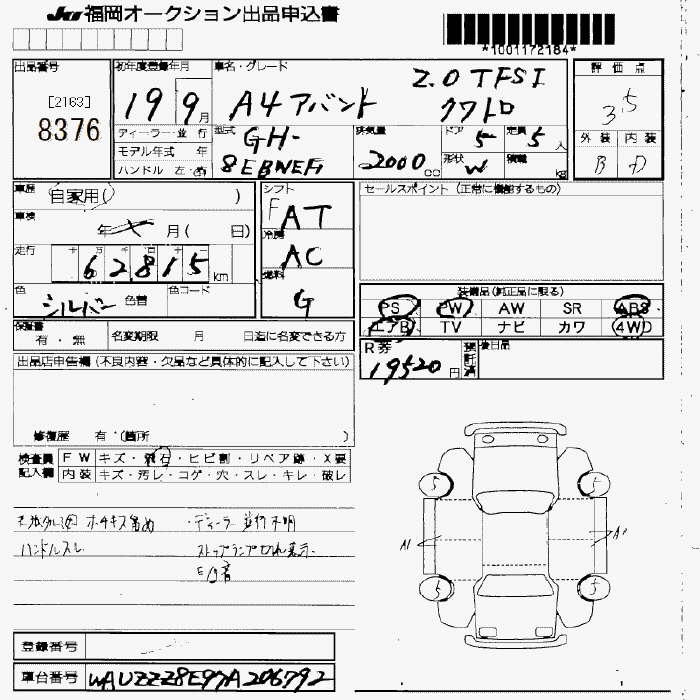 JU 福岡オークション出品申込書
*1001172184*
出品番号
[2163]
8376
初年度登録年月
19 9月
車名・グレード
A4 アバント 2.0 TFSI クワトロ
評価点
3.5
ディーラー・並行
モデル年式 年
ハンドル 左・右
型式
GH-8EBWEF
排気量
2000cc
ドア 5
定員 5人
形状 W
積載 kg
外装 内装
B D
車歴 自家用( )
車検 年 月( 日)
走行 十 万 千 百 十
62815km
色 シルバー 色替
色コード
シフト F AT
冷房 AC
燃料 G
セールスポイント(正常に機能するもの)
装備品(純正品に限る)
PS PW AW SR ABS
エアB TV ナビ カワ 4WD
保証書 有・無
名変期限 月 日迄に名変できる方
R券 19520円
預託済
後日品
出品店申告欄(不良内容・欠品など具体的に記入して下さい)
修復歴 有・(箇所 )
検査員記入欄
FW キズ・飛石・ヒビ割・リペア跡・X要
内装 キズ・汚レ・コゲ・穴・スレ・キレ・破レ
ホチキス留め
・ディーラー並行不明
ハンドルスレ
ストップランプ切れ表示
5 5
A1
5 5
登録番号
車台番号 WAUZZZ8E97A206792